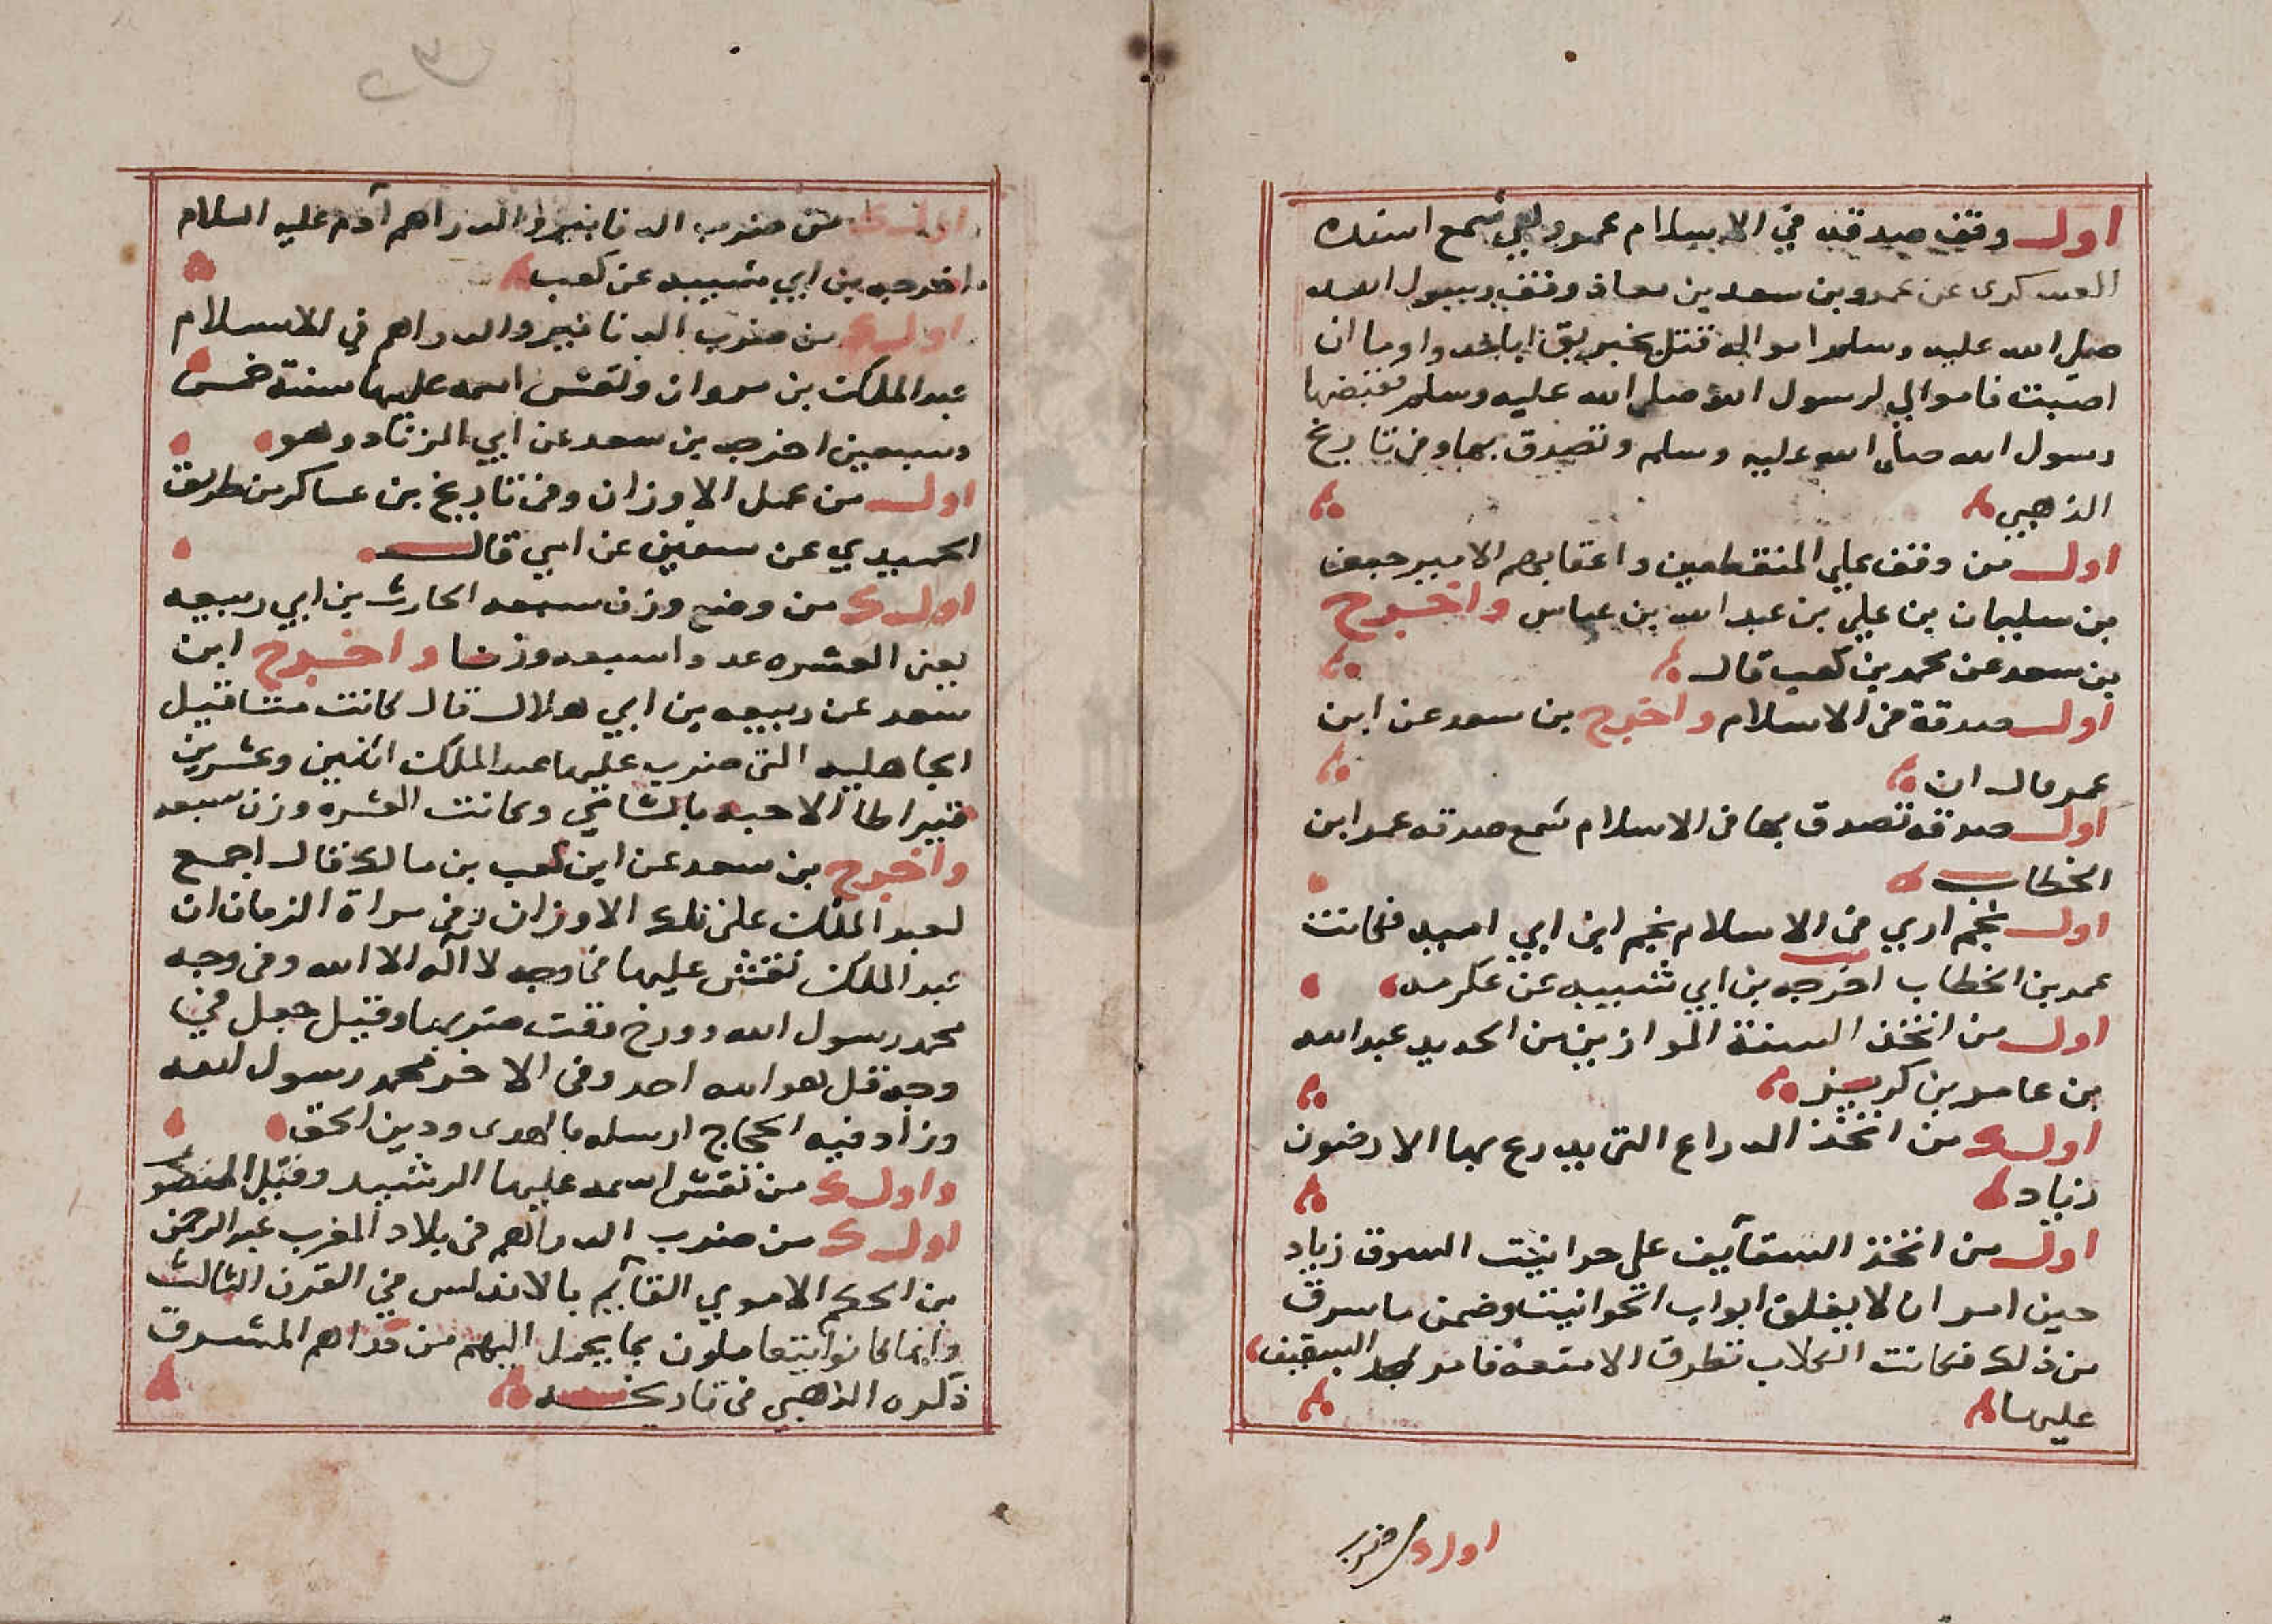 اول وقف صدقه في الاسلام عمر وبقي ثمغ اسنده
العسكرى عن عمرو بن سعد بن معاذ وقف رسول الله
صلى الله عليه وسلم اموال قتل مخيريق اياحد واوما ان
اصبت فاموالي لرسول الله صلى الله عليه وسلم فقبضها
رسول الله صلى الله عليه وسلم وتصدق بها وفى تاريخ
الذهبي
اول من وقف علي المنقطعين واعقابهم الامير جعفر
بن سليمان بن علي بن عبد الله بن عباس واخرج
بن سعد عن محمد بن كعب قال
اول صدقة فى الاسلام واخرج بن سعد عن ابن
عمر قال ان
اول صدقه تصدق بها فى الاسلام ثمغ صدقه عمر ابن
الخطاب
اول نجم ادي فى الاسلام نجم ابن ابي اميه فكانت
عمر بن الخطاب اخرجه بن ابي شيبه عن عكرمه
اول من اتخذ السنة الموازين من الحديد عبد الله
بن عامر بن كريز
اول من اتخذ الدراع التى يدرع بها الارضون
زياد
اول من اتخذ السقآيف على حوانيت السوق زياد
حين امر ان لا يغلق ابواب الحوانيت وضمن ما سرق
من ذلك فكانت الكلاب تطرق الامتعة فامر السقيف
عليها
اول من ضرب
اول من ضرب الدنانير والدراهم آدم عليه السلام
اخرجه بن ابي شيبه عن كعب
اول من ضرب الدنانير والدراهم في الاسلام
عبد الملك بن مروان ونقش اسمه عليها سنة خمس
وسبعين اخرجه بن سعد عن ابي الزناد وهو
اول من عمل الاوزان وفى تاريخ بن عساكر من طريق
الحميدي عن سفين عن ابي قال
اول من وضع وزن سبعه الحارث بن ابي ربيعه
يعنى العشره عددا سبعه وزنا واخرج ابن
سعد عن ربيعه بن ابي هلال قال كانت مثاقيل
الجاهليه التى ضرب عليها عبد الملك اثنين وعشرين
قيراطا الا حبه بالشامي وكانت العشره وزن سبعه
واخرج بن سعد عن ابن كعب بن مالك قال اجمع
لعبد الملك على تلك الاوزان وفى مراة الزمان ان
عبد الملك نقش عليها فى وجه لا آله الا الله وفى وجه
محمد رسول الله وورخ وقت ضربها وقيل جعل في
وجه قل هو الله احد وفى الاخر محمد رسول الله
وزاد فيه الحجاج ارسله بالهدى ودين الحق
واول من نقش اسمه عليها الرشيد وقيل المنصور
اول من ضرب الدراهم فى بلاد المغرب عبد الرحمن
بن الحكم الاموي القآيم بالاندلس في القرن الثالث
وانما كانوا يتعاملون بما يحمل اليهم من دراهم المشرق
ذكره الذهبي فى تاريخه